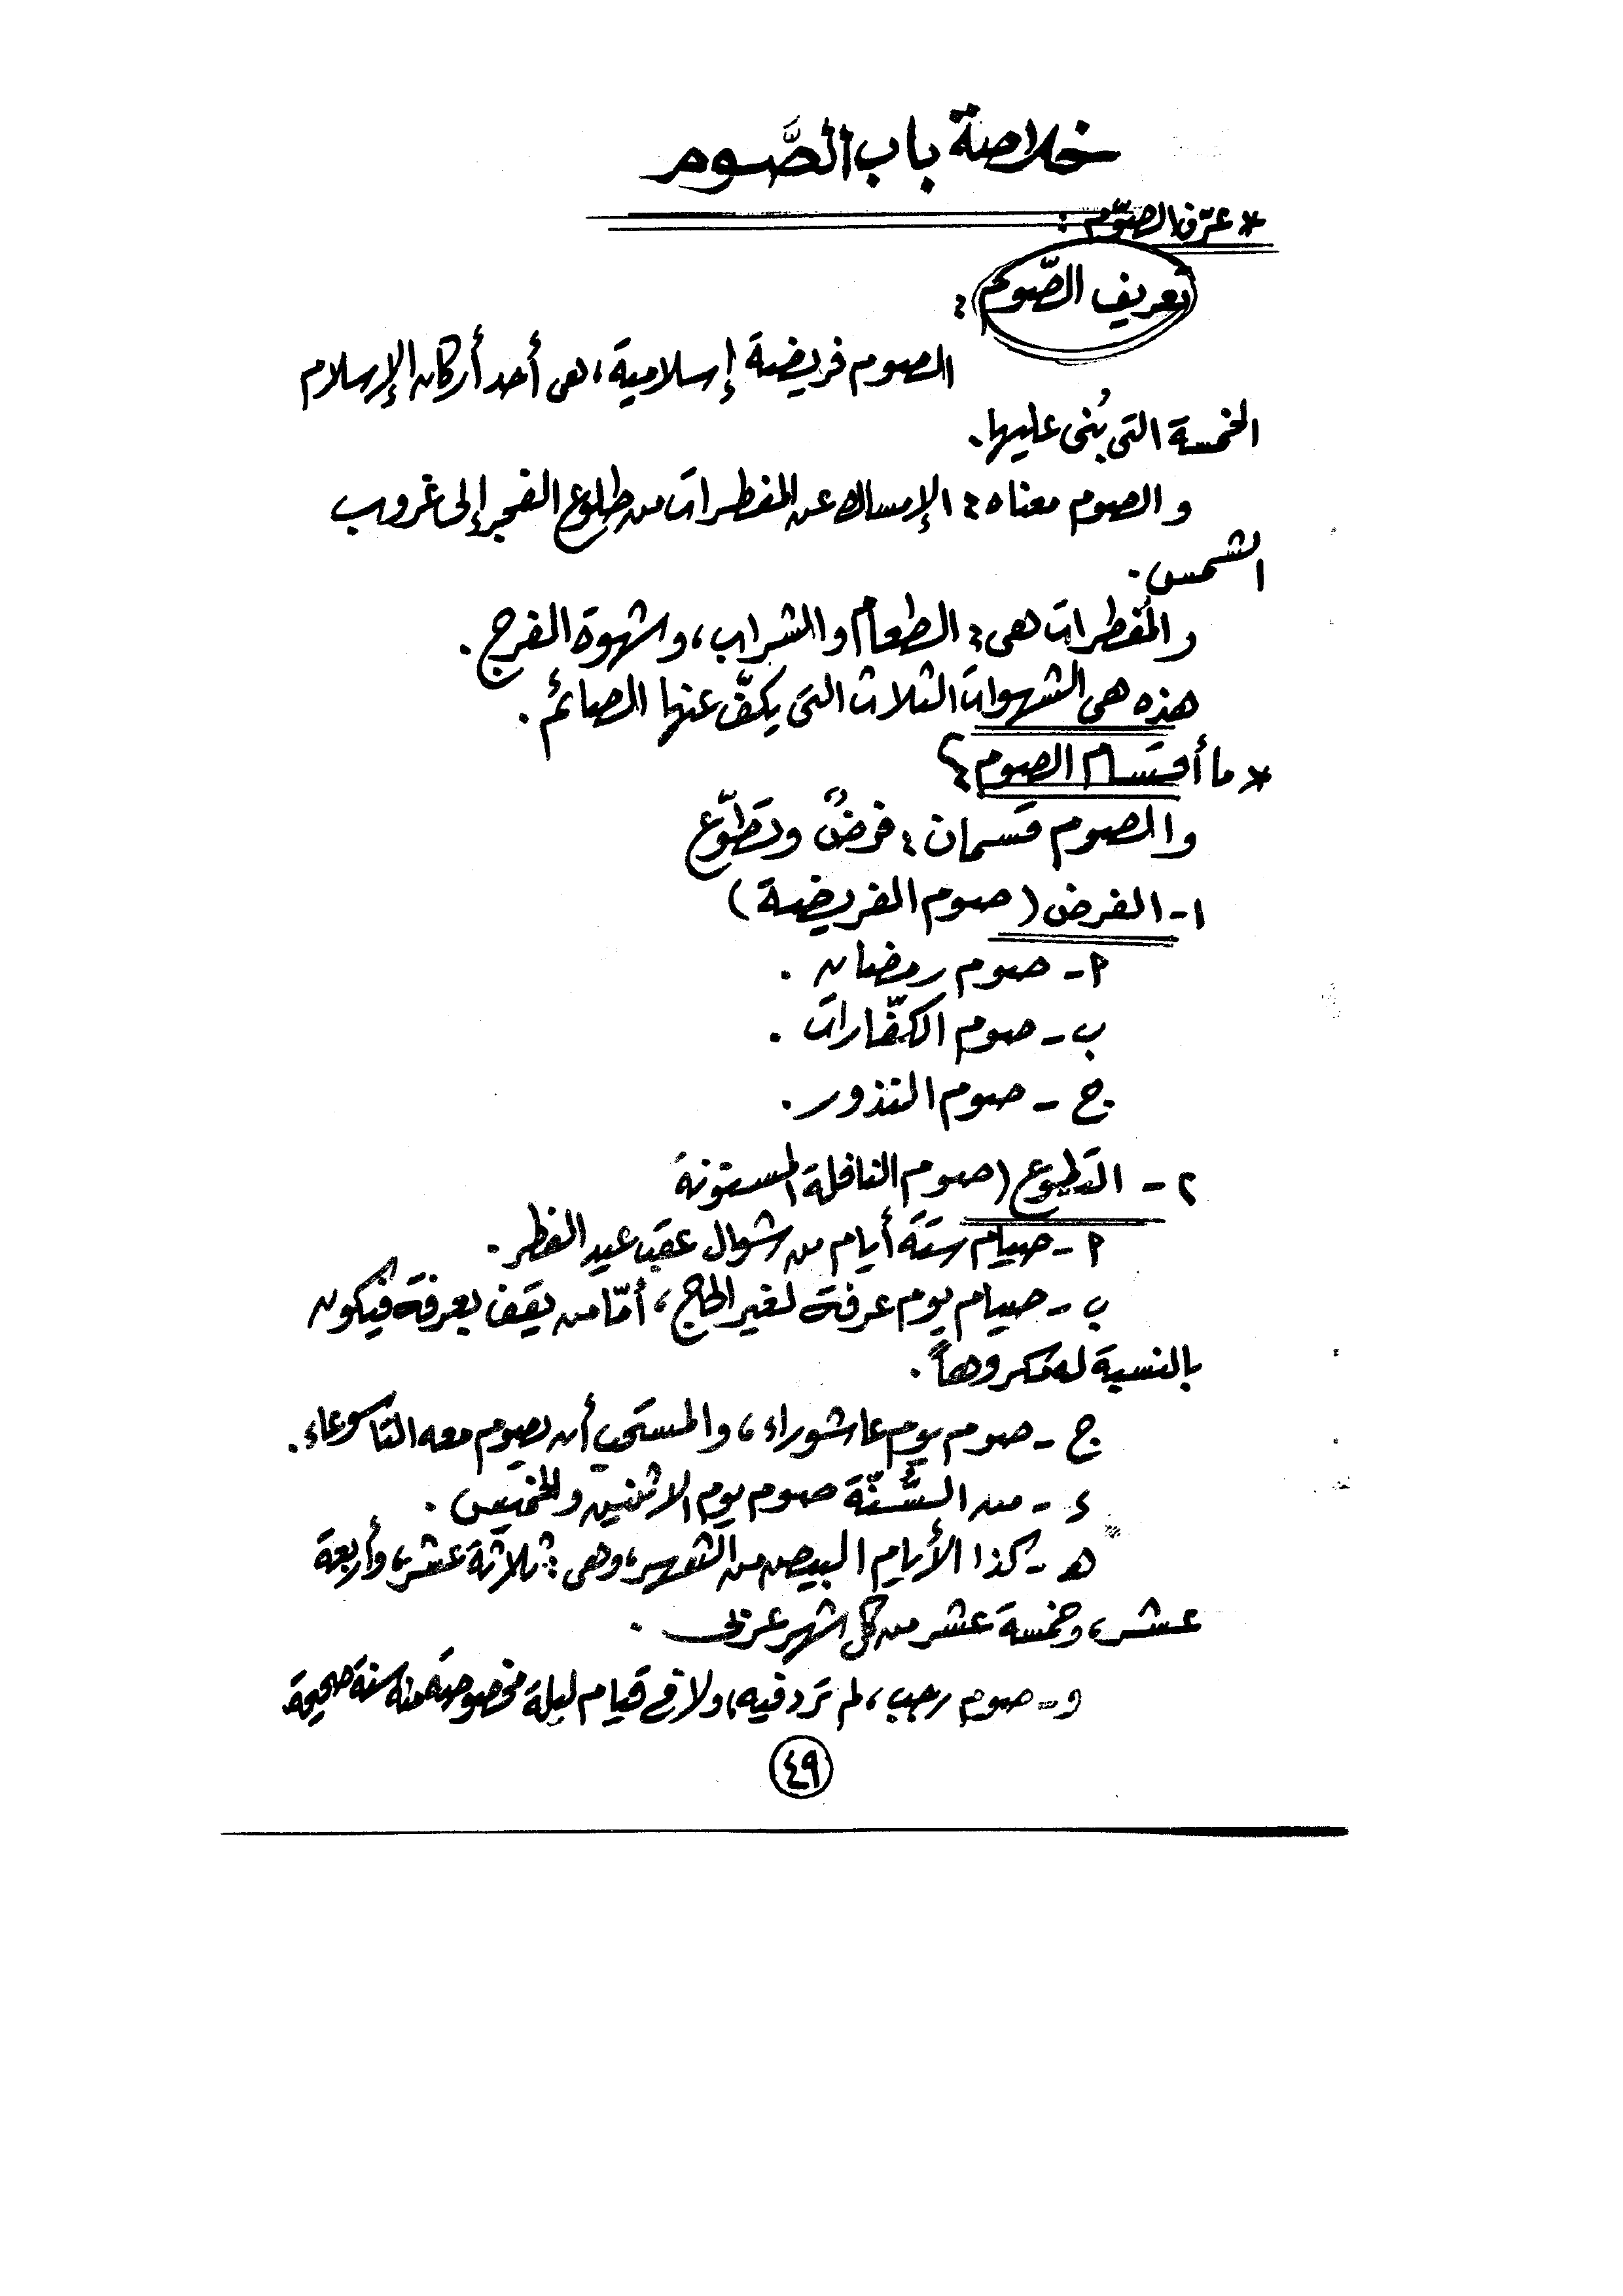 خلاصة باب الصَّوم
* عرّف الصوّم :
تعريف الصّوم :
الصوم فريضة إسلامية، هى أحد أركان الإسلام
الخمسة التى بُنى عليها.
والصوم معناه : الإمساك عن المفطرات من طلوع الفجر إلى غروب
الشمس.
والمُفطرات هى : الطعام والشراب، وشهوة الفرج.
هذه هى الشهوات الثلاث التى يكفّ عنها الصائم.
* ما أقسام الصوم ؟
والصوم قسمان : فرضٌ وتطوّع
١- الفرض (صوم الفريضة)
أ - صوم رمضان .
ب - صوم الكفّارات .
ج - صوم النذور.
٢ - التطوع (صوم النافلة المسنونة
أ - صيام ستة أيام من شوال عقب عيد الفطر.
ب - صيام يوم عرفة لغير الحاج، أمّا من يقف بعرفة فيكون
بالنسبة له مكروهاً.
ج - صوم يوم عاشوراء، والمستحب أن يصوم معه التاسوعاء.
د - من السُّنّة صوم يوم الاثنين والخميس.
هـ - كذا الأيام البيض من الشهر، وهى : ثلاثة عشر، وأربعة
عشر، وخمسة عشر من كل شهر عربى.
و - صوم رجب، لم ترد فيه، ولا فى قيام ليلة مخصوصة منه سنة صحيحة
٤٩